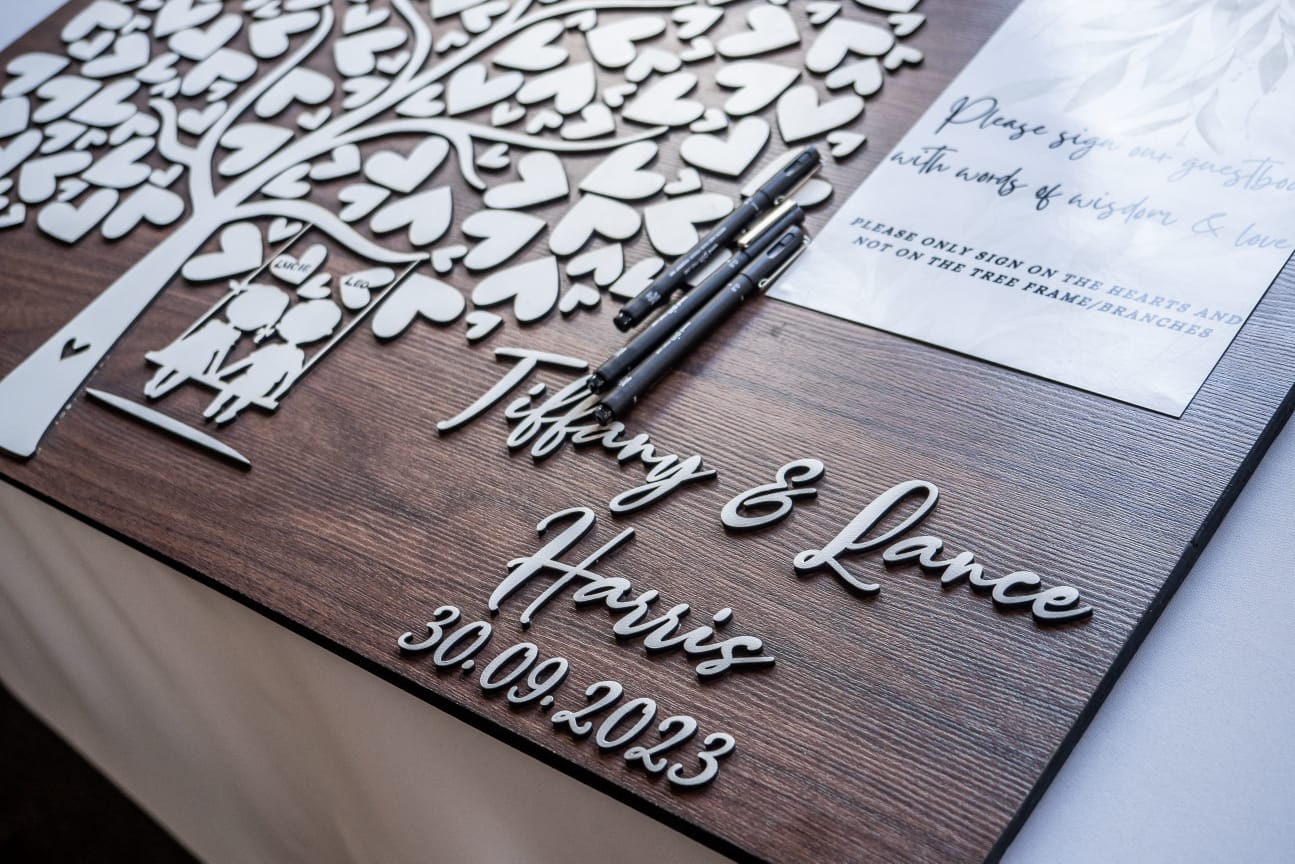 LUCIE
LEO
Please sign our guestboo
with words of wisdom & love
PLEASE ONLY SIGN ON THE HEARTS AND
NOT ON THE TREE FRAME/BRANCHES
Tiffany & Lance
Harris
30.09.2023